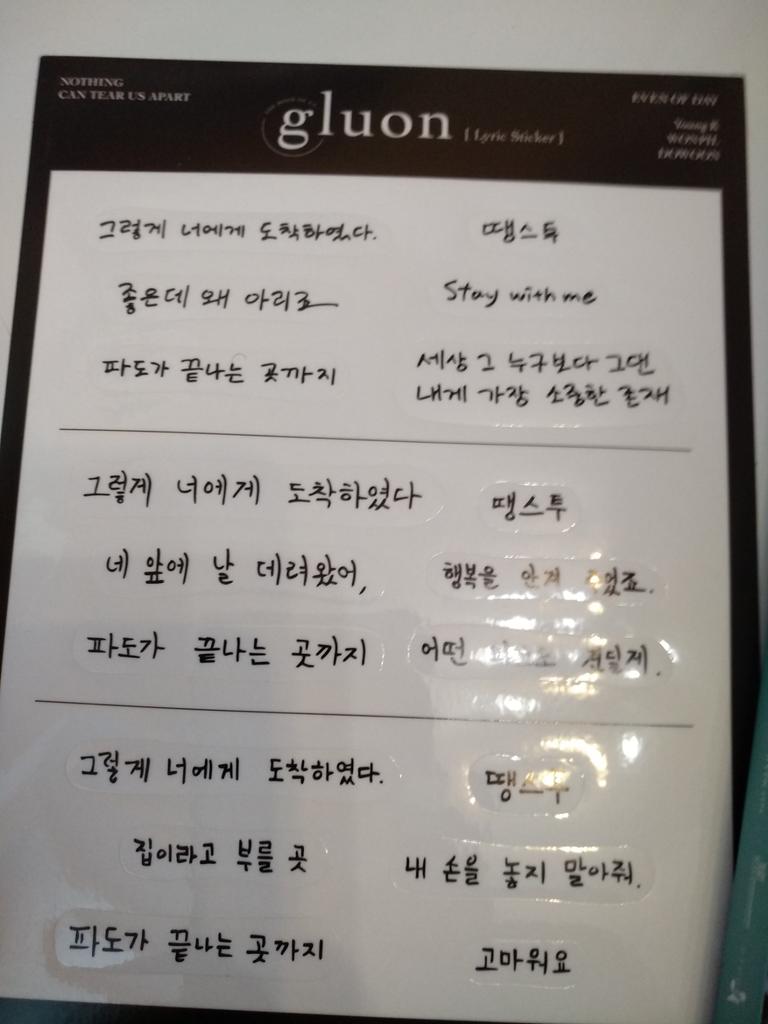 NOTHING
CAN TEAR US APART
gluon [ Lyric Sticker ]
EVEN OF DAY
Young K
WONPIL
DOWOON
그렇게 너에게 도착하였다.
땡스투
좋은데 왜 아리죠
Stay with me
파도가 끝나는 곳까지
세상 그 누구보다 그댄
내게 가장 소중한 존재
그렇게 너에게 도착하였다
땡스투
네 앞에 날 데려왔어,
행복을 안겨 주었죠.
파도가 끝나는 곳까지
어떤 견딜게.
그렇게 너에게 도착하였다.
땡스투
집이라고 부를 곳
내 손을 놓지 말아줘.
파도가 끝나는 곳까지
고마워요